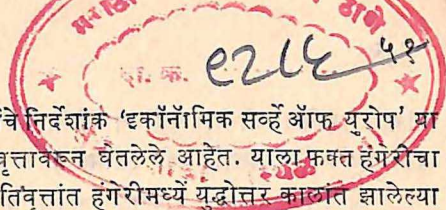 मराठी ठाणे
दा. क. ९२८६ ५१
चे निर्देशांक 'इकॉनॉमिक सर्व्हे ऑफ युरोप' या
वृत्तावरून घेतलेले आहेत. याला फक्त हंगेरीचा
तिवृत्तांत हंगेरीमध्यें युद्धोत्तर कालांत झालेल्या